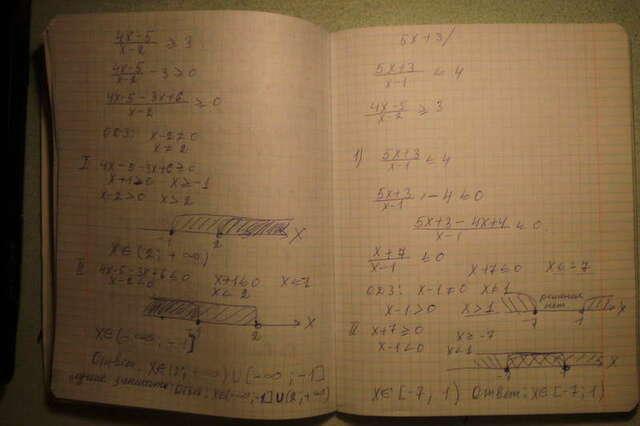 (4x-5)/(x-2) ≥ 3
(4x-5)/(x-2) - 3 ≥ 0
(4x-5-3x+6)/(x-2) ≥ 0
ОДЗ: x-2≠0
x≠2
I 4x-5-3x+6≥0
x+1≥0 x≥-1
x-2>0 x>2
-1 2 x
x∈(2;+∞)
II 4x-5-3x+6≤0 x+1≤0 x≤-1
x-2<0 x<2
-1 2 x
x∈(-∞;-1]
Ответ: x∈(2;+∞)∪(-∞;-1]
x∈(-∞;-1]∪(2;+∞)
5x+3/
(5x+3)/(x-1) ≤ 4
(4x-5)/(x-2) ≥ 3
1) (5x+3)/(x-1) ≤ 4
(5x+3)/(x-1) - 4 ≤ 0
(5x+3-4x+4)/(x-1) ≤ 0
(x+7)/(x-1) ≤ 0 x+7≤0 x≤-7
ОДЗ: x-1≠0 x≠1
x-1>0 x>1 решения нет
-7 1 x
II x+7≥0 x≥-7
x-1<0 x<1
x
x∈[-7; 1) Ответ: x∈[-7; 1)